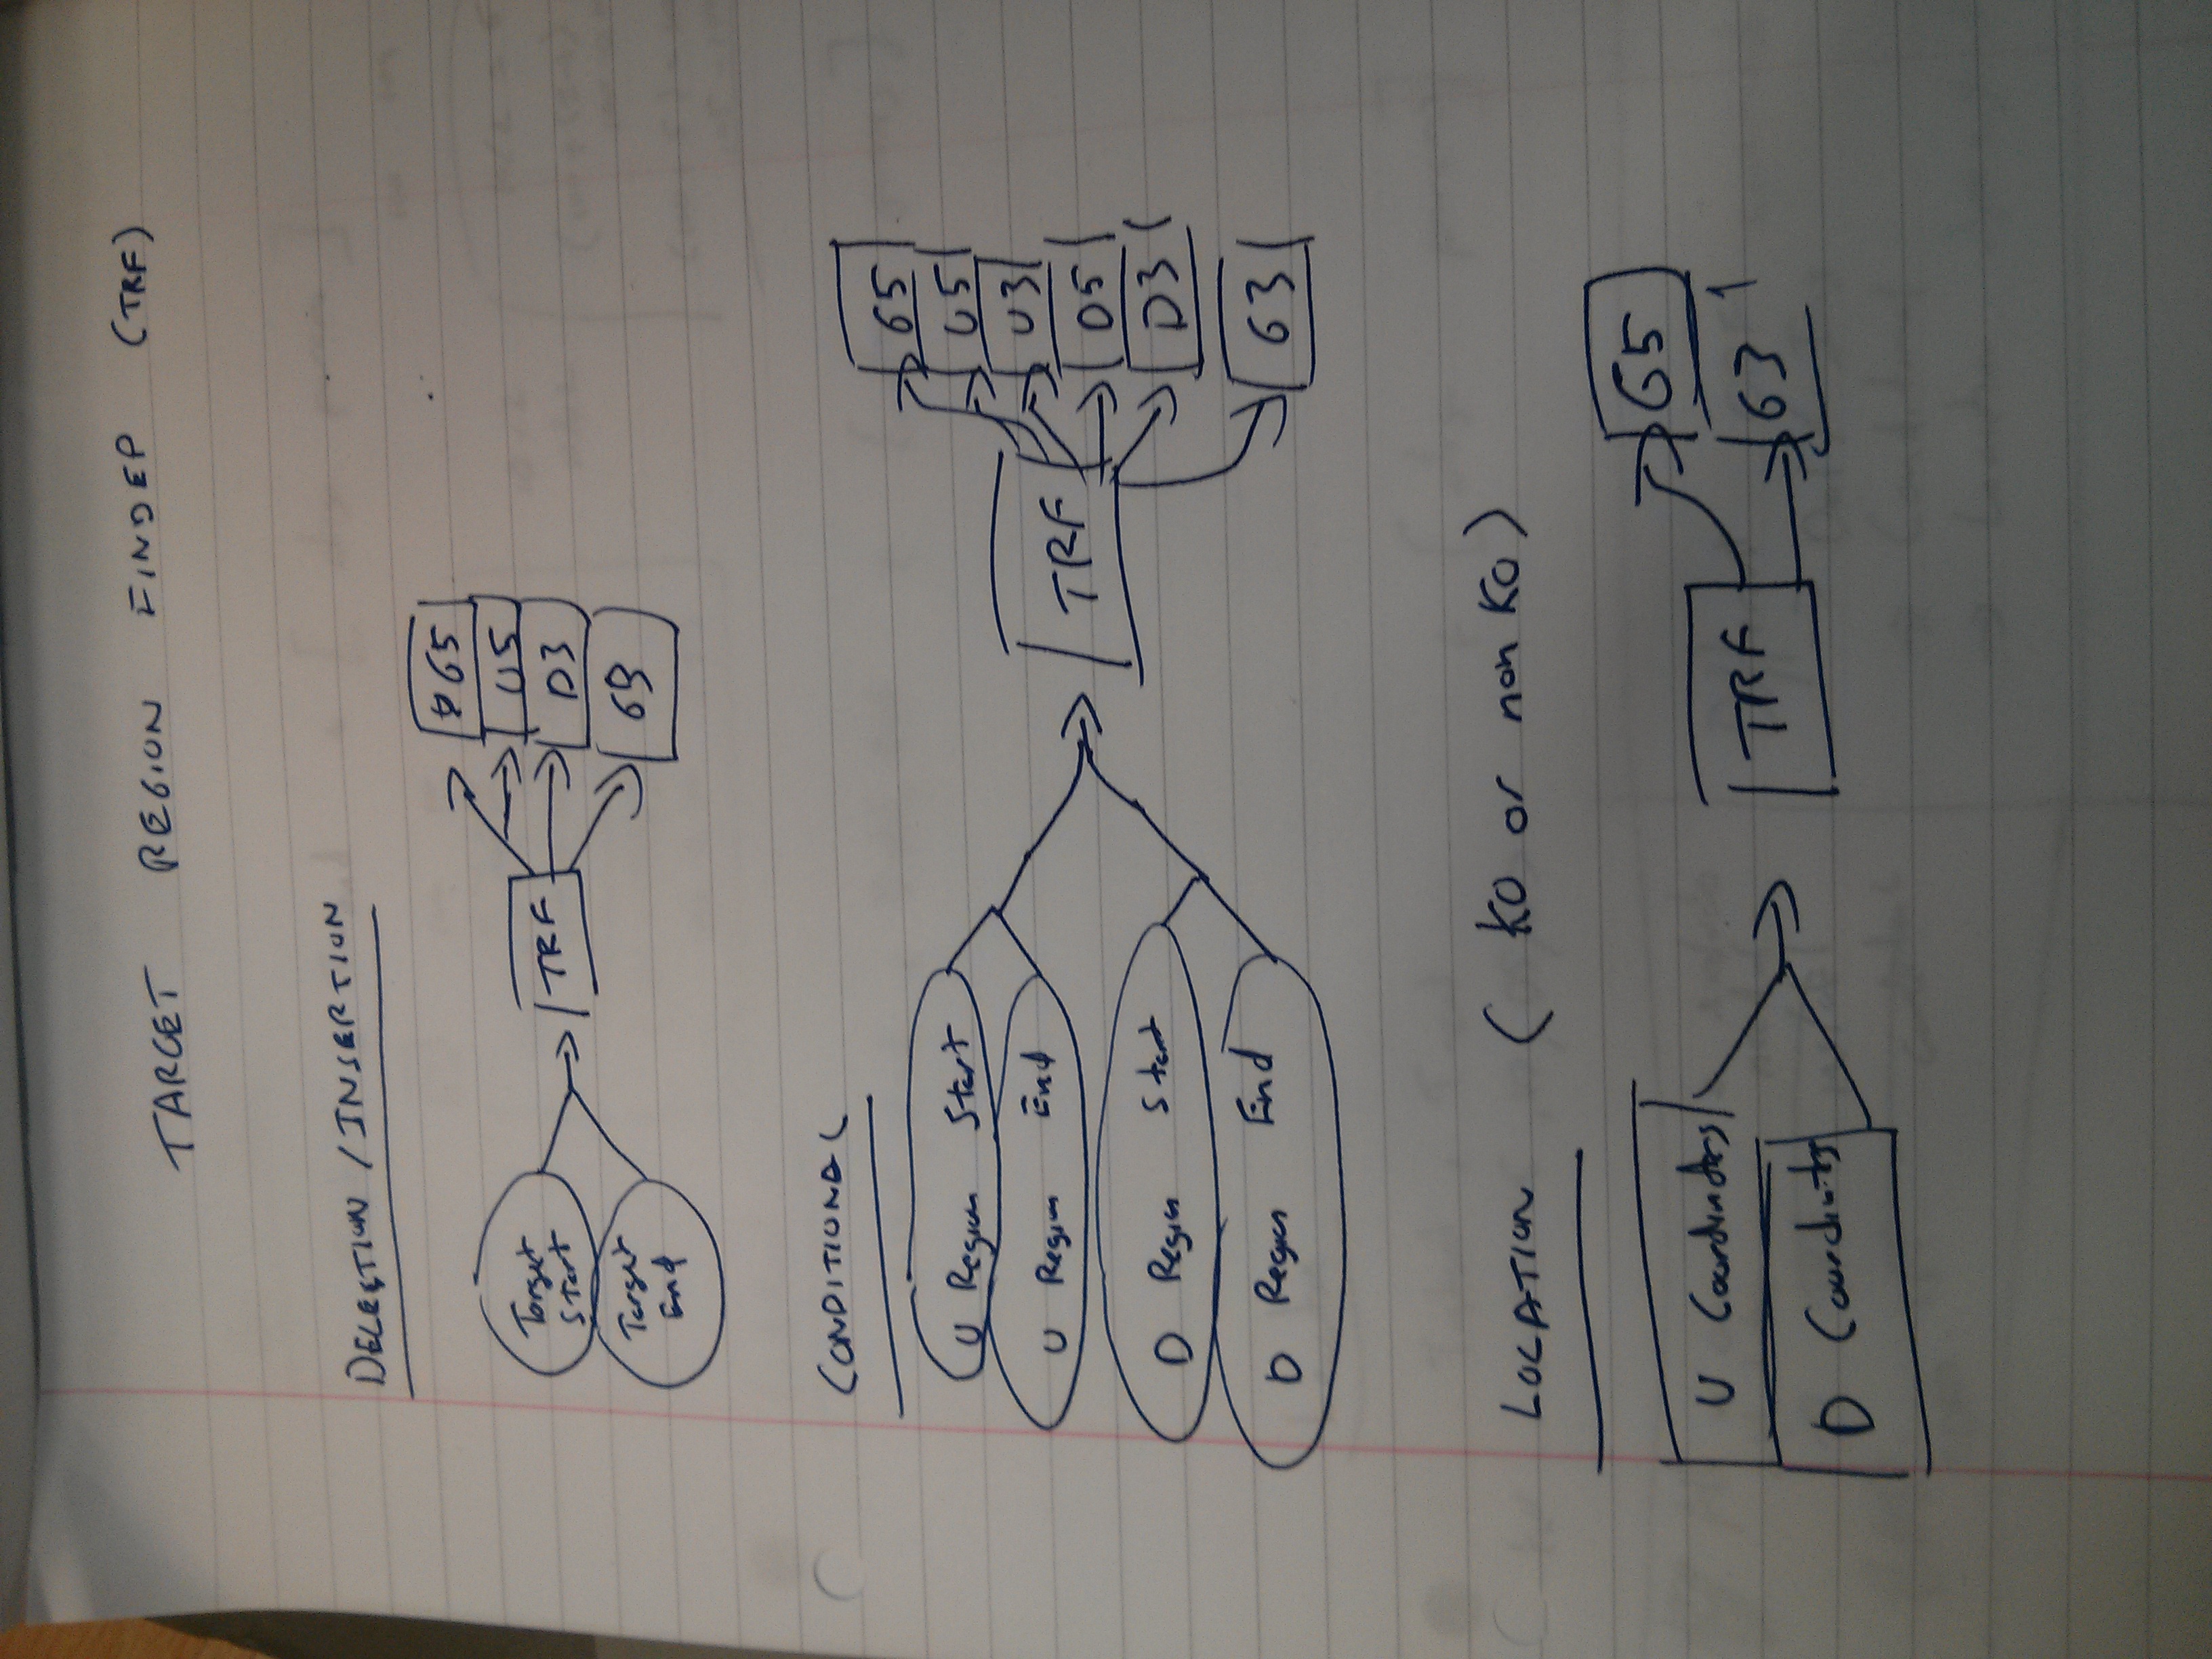 TARGET REGION FINDER (TRF)
DELETION / INSERTION
Target
Start
Target
End
TRF
G5
U5
D3
G3
CONDITIONAL
U Region Start
U Region End
D Region Start
D Region End
TRF
G5
U5
U3
D5
D3
G3
LOCATION (KO or non KO)
U Coordinates
D Coordinates
TRF
G5
G3